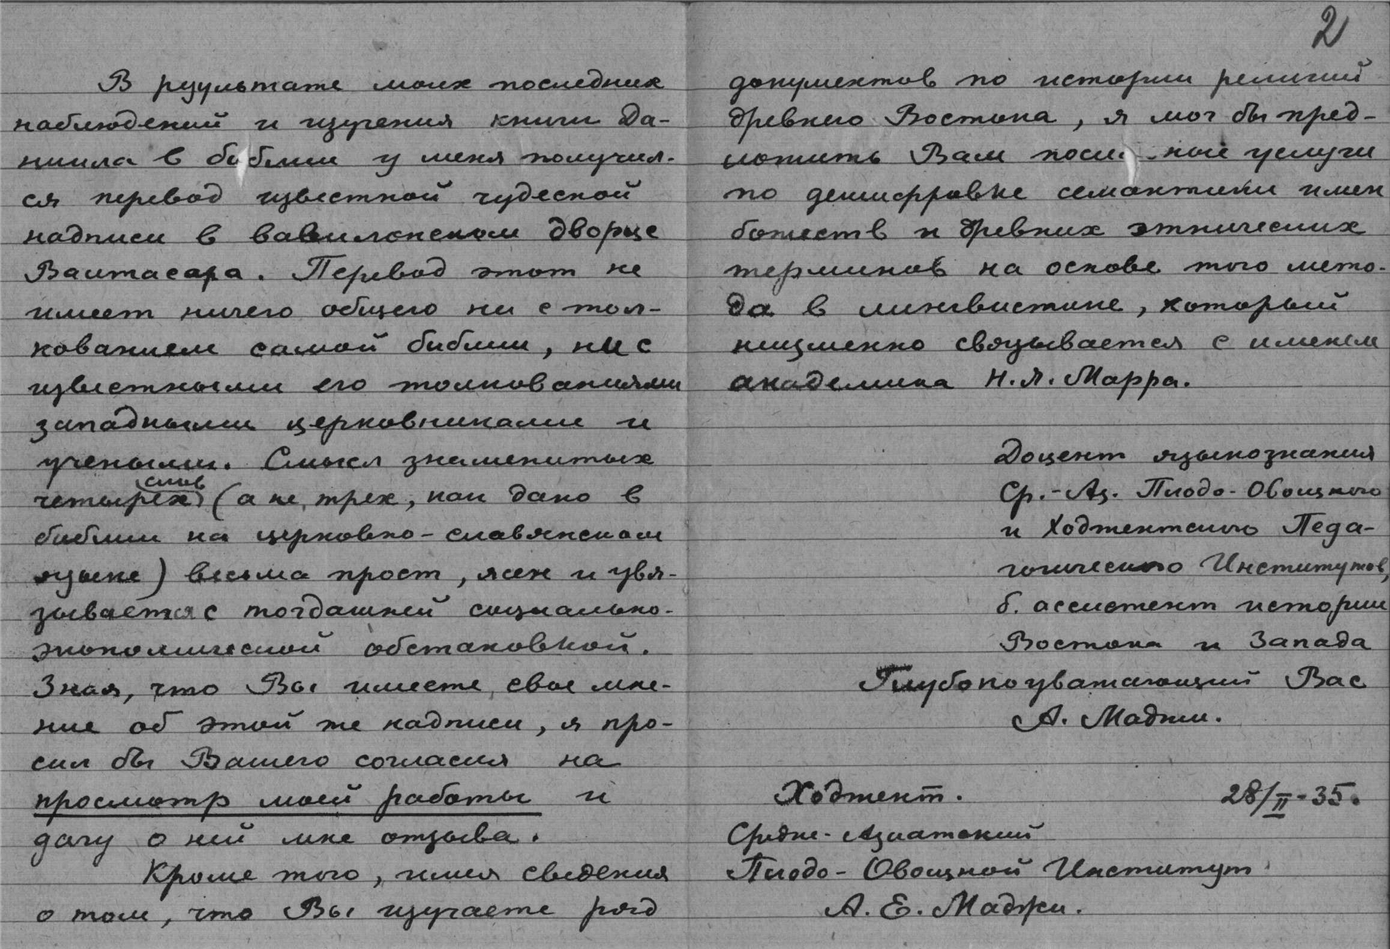 2
В рзультате моих последних
наблюдений и изучения книги Да-
ниила в библии у меня получил-
ся перевод известной чудесной
надписи в вавилонском дворце
Валтасара. Перевод этот не
имеет ничего общего ни с тол-
кованием самой библии, ни с
известными его толкованиями
западными церковниками и
учеными. Смысл знаменитых
четырех слов (а не трех, как дано в
библии на церковно-славянском
языке) весьма прост, ясен и увя-
зывается с тогдашней социально-
экономической обстановкой.
Зная, что Вы имеете свое мне-
ние об этой же надписи, я про-
сил бы Вашего согласия на
просмотр моей работы и
дачу о ней мне отзыва.
Кроме того, имея сведения
о том, что Вы изучаете ряд
документов по истории религий
древнего Востока, я мог бы пред-
ложить Вам услуги
по дешифровке семантики имен
божеств и древних этнических
терминов на основе того мето-
да в лингвистике, который
неизменно связывается с именем
академика Н.Я. Марра.
Доцент языкознания
Ср.-Аз. Плодо-Овощного
и Ходжентского Педа-
гогического Институтов,
б. ассистент истории
Востока и Запада
Глубокоуважающий Вас
А. Маджи.
Ходжент. 28/II-35.
Средне-Азиатский
Плодо-Овощной Институт
А. Е. Маджи.